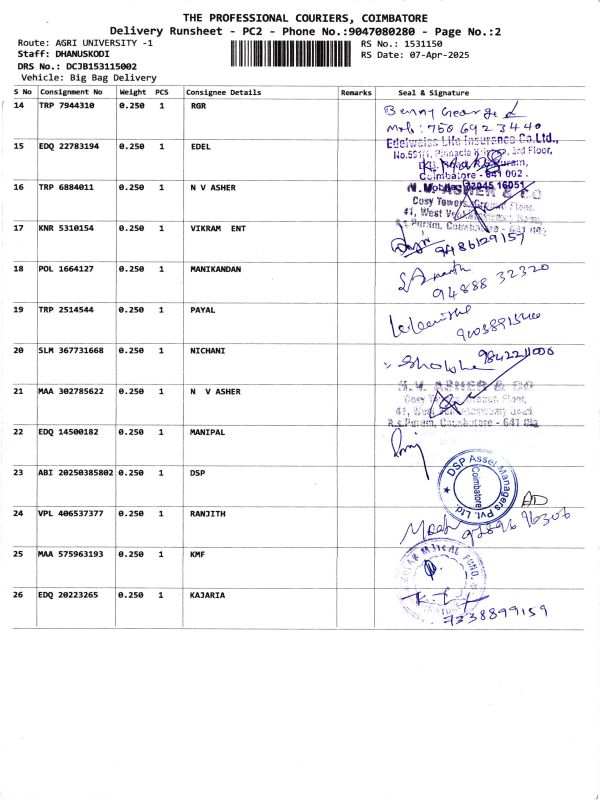 THE PROFESSIONAL COURIERS, COIMBATORE
Delivery Runsheet - PC2 - Phone No.:9047080280 - Page No.:2
Route: AGRI UNIVERSITY -1
RS No.: 1531150
Staff: DHANUSKODI
RS Date: 07-Apr-2025
DRS No.: DCJB153115002
Vehicle: Big Bag Delivery
S No Consignment No Weight PCS Consignee Details Remarks Seal & Signature
14 TRP 7944310 0.250 1 RGR
Benny George
Mob: 750 6923440
15 EDQ 22783194 0.250 1 EDEL
Edelweiss Life Insurance Co.Ltd.,
3rd Floor,
Coimbatore - 641 002.
16 TRP 6884011 0.250 1 N V ASHER
N.V. ASHER & CO
Cosy Towers, Ground Floor,
41, West
R.s.Puram, Coimbatore - 641
17 KNR 5310154 0.250 1 VIKRAM ENT
9486129157
18 POL 1664127 0.250 1 MANIKANDAN
94888 32320
19 TRP 2514544 0.250 1 PAYAL
20 SLM 367731668 0.250 1 NICHANI
9842211006
21 MAA 302785622 0.250 1 N V ASHER
N.V. ASHER & CO
Cosy Ground Floor,
41, West
R.s.Puram, Coimbatore - 641
22 EDQ 14500182 0.250 1 MANIPAL
23 ABI 20250385802 0.250 1 DSP
DSP Asset Managers Pvt. Ltd
Coimbatore
24 VPL 406537377 0.250 1 RANJITH
97896 96306
25 MAA 575963193 0.250 1 KMF
FUND
26 EDQ 20223265 0.250 1 KAJARIA
7338899159